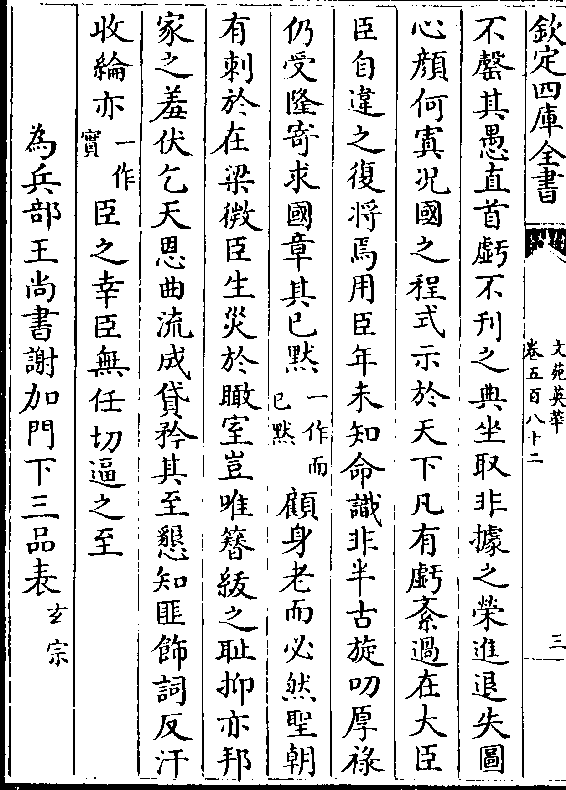 欽定四庫全書
文苑英華
卷五百八十二
三
不罄其愚直首虧不刋之典坐取非據之榮進退失圖
心顔何寘况國之程式示於天下凡有虧紊過在大臣
臣自違之復將焉用臣年未知命識非半古旋叨厚禄
仍受隆寄求國章其已黙一作而已黙顧身老而必然聖朝
有刺於在梁微臣生災於瞰室豈唯簪紱之耻抑亦邦
家之羞伏乞天恩曲流成貸矜其至懇知匪飾詞反汗
收綸亦一作實臣之幸臣無任切逼之至
為兵部王尚書謝加門下三品表玄宗